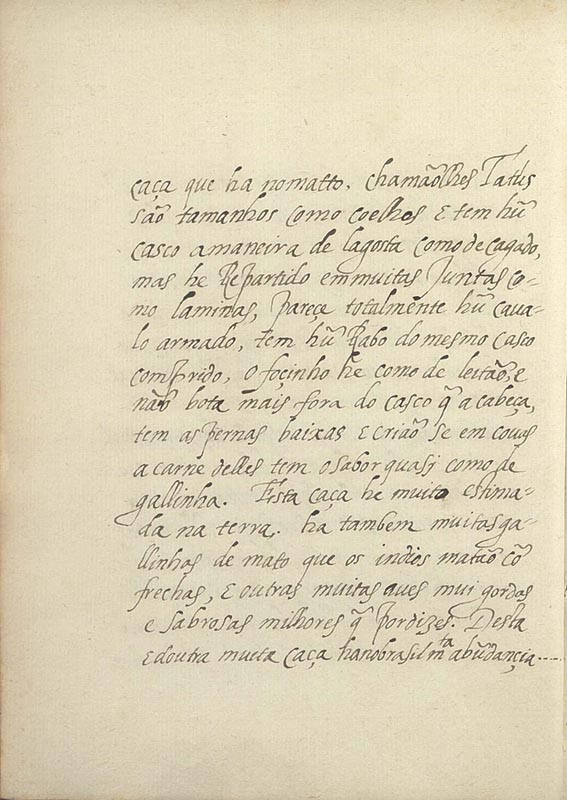 caça que ha nomatto. chamãolhes Tatús
são tamanhos como coelhos e tem hũ
casco amaneira de lagosta como de cagado,
mas he Repartido em muitas Juntas co-
mo laminas, pareçe totalmẽnte hũ caua-
lo armado, tem hũ Rabo do mesmo casco
comprido, o foçinho he como de leitão, e
não bota mais fora do casco q̃ a cabeça,
tem as pernas baixas e crião se em couas
a carne delles tem o sabor quasi como de
gallinha. Esta caça he muito estima-
da na terra. ha tambem muitas ga-
llinhas de mato que os indios matão cõ
frechas, e outras muitas aues mui gordas
e sabrosas milhores q̃ perdizes. Desta
e doutra muita caça ha no brasil mta abũdançia....